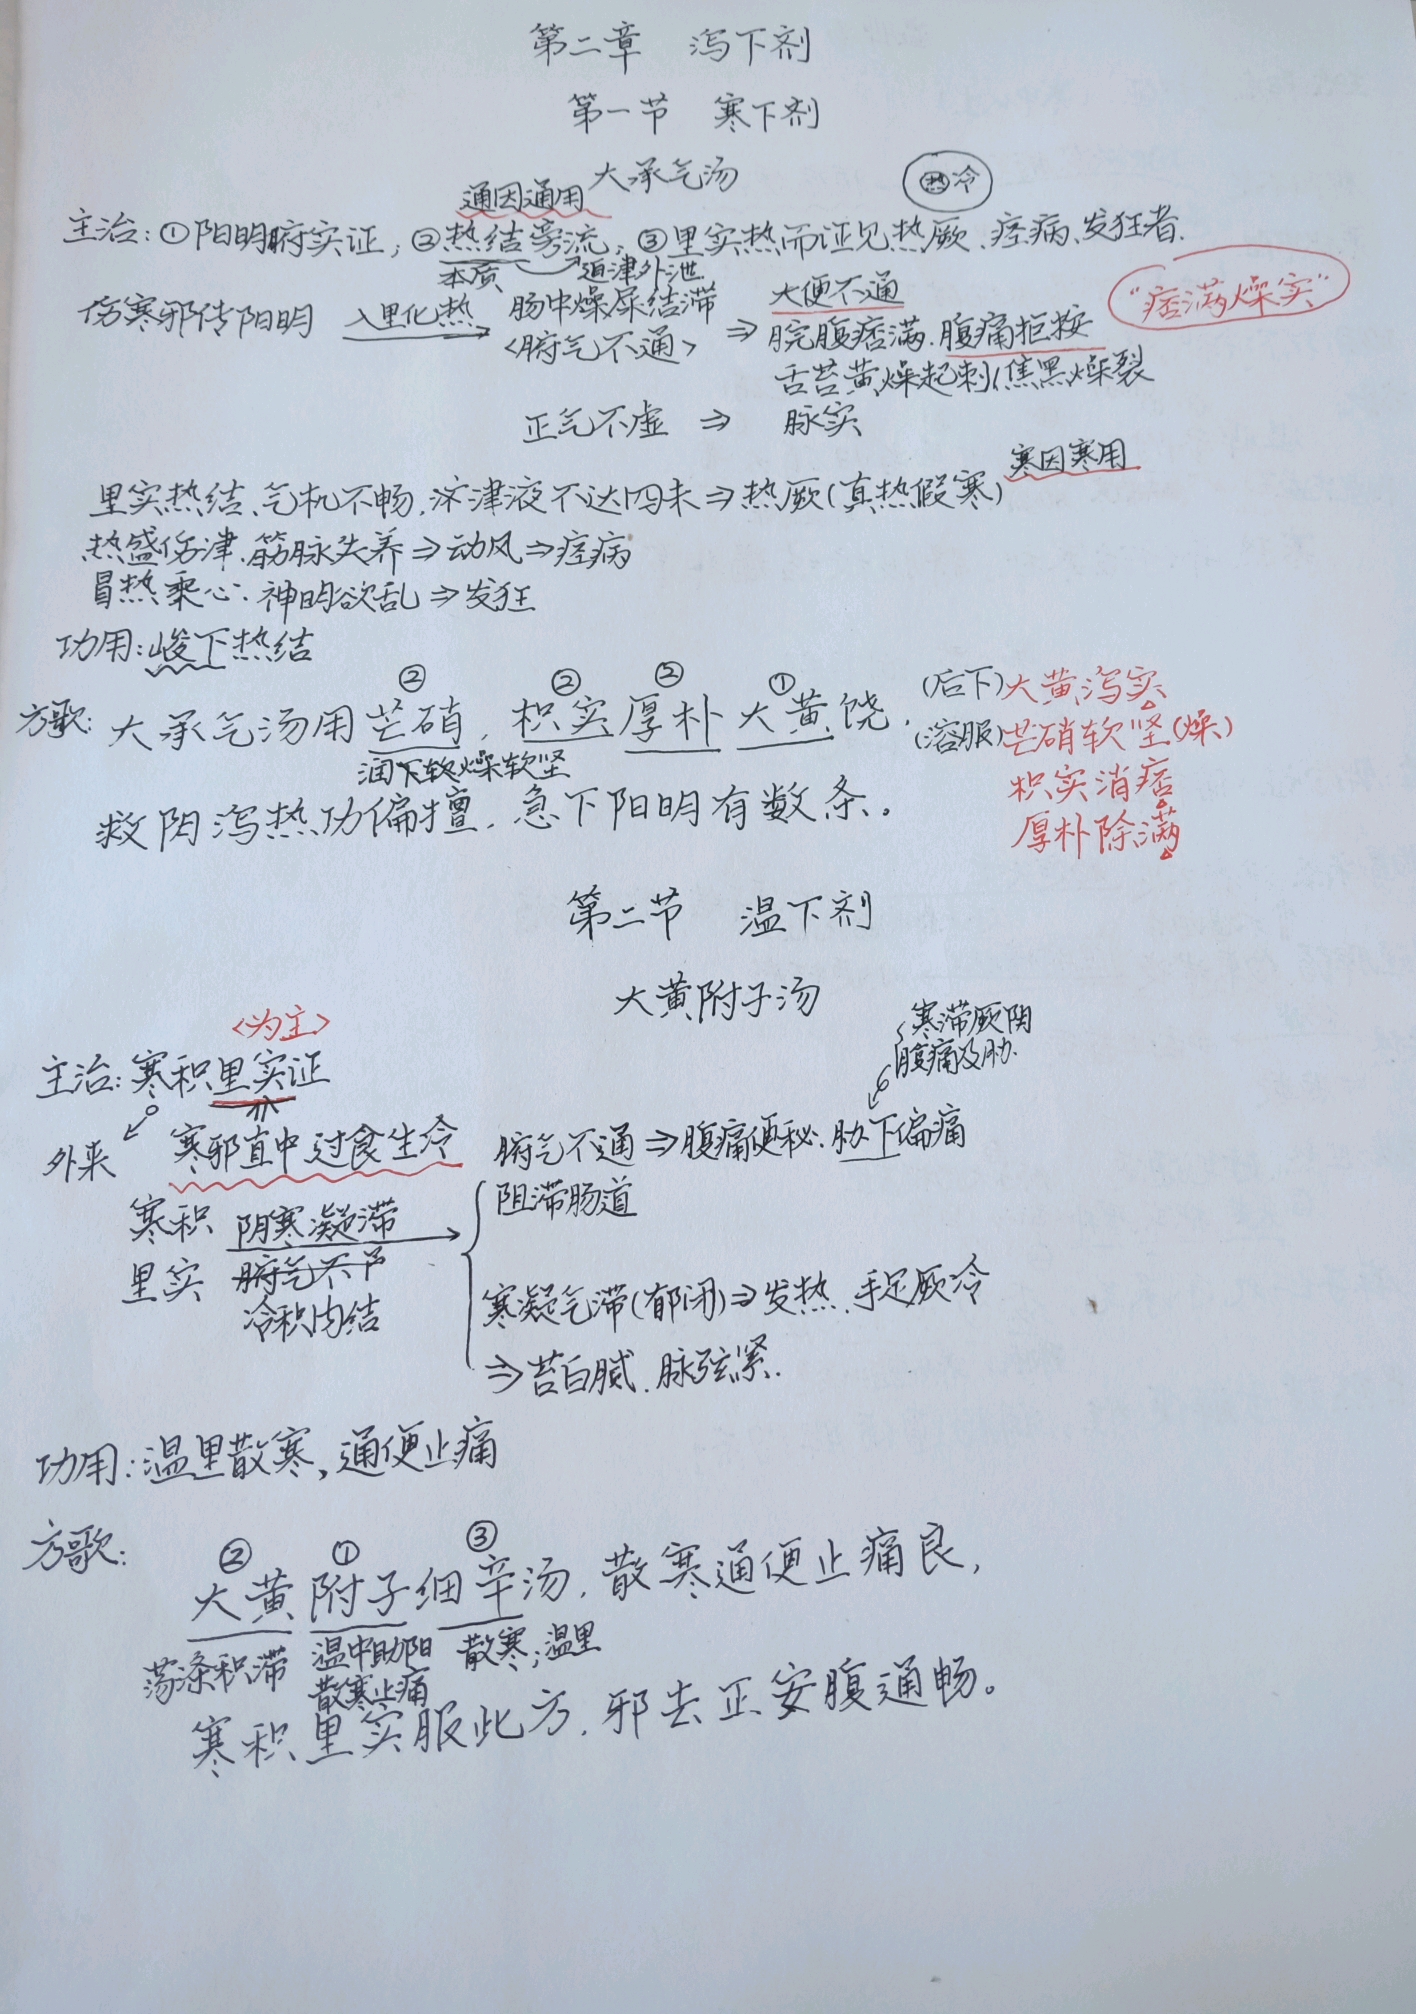 第二章 泻下剂
第一节 寒下剂
大承气汤
热冷
通因通用
主治:①阳明腑实证;②热结旁流;③里实热而证见热厥、痉病、发狂者.
本质 迫津外泄
伤寒邪传阳明 入里化热 肠中燥屎结滞 ⇒ 大便不通 “痞满燥实”
<腑气不通> 脘腹痞满.腹痛拒按
舌苔黄燥起刺/焦黑燥裂
正气不虚 ⇒ 脉实
寒因寒用
里实热结、气机不畅,津液不达四末⇒热厥(真热假寒)
热盛伤津.筋脉失养⇒动风⇒痉病
冒热乘心:神明欲乱⇒发狂
功用:峻下热结
② ② ② ①
方歌:大承气汤用芒硝,枳实厚朴大黄饶,
润下软燥软坚
救阴泻热功偏擅,急下阳明有数条。
(后下)大黄泻实
(溶服)芒硝软坚(燥)
枳实消痞
厚朴除满
第二节 温下剂
大黄附子汤
<为主>
主治:寒积里实证
寒滞厥阴
腹痛及胁.
外来 寒邪直中过食生冷
腑气不通⇒腹痛便秘.胁下偏痛
阻滞肠道
寒积 阴寒凝滞
里实 腑气不
冷积内结
寒凝气滞(郁闭)⇒发热.手足厥冷
⇒苔白腻.脉弦紧.
功用:温里散寒,通便止痛
方歌:
② ① ③
大黄附子细辛汤,散寒通便止痛良,
荡涤积滞 温中助阳 散寒;温里
散寒止痛
寒积里实服此方,邪去正安腹通畅。